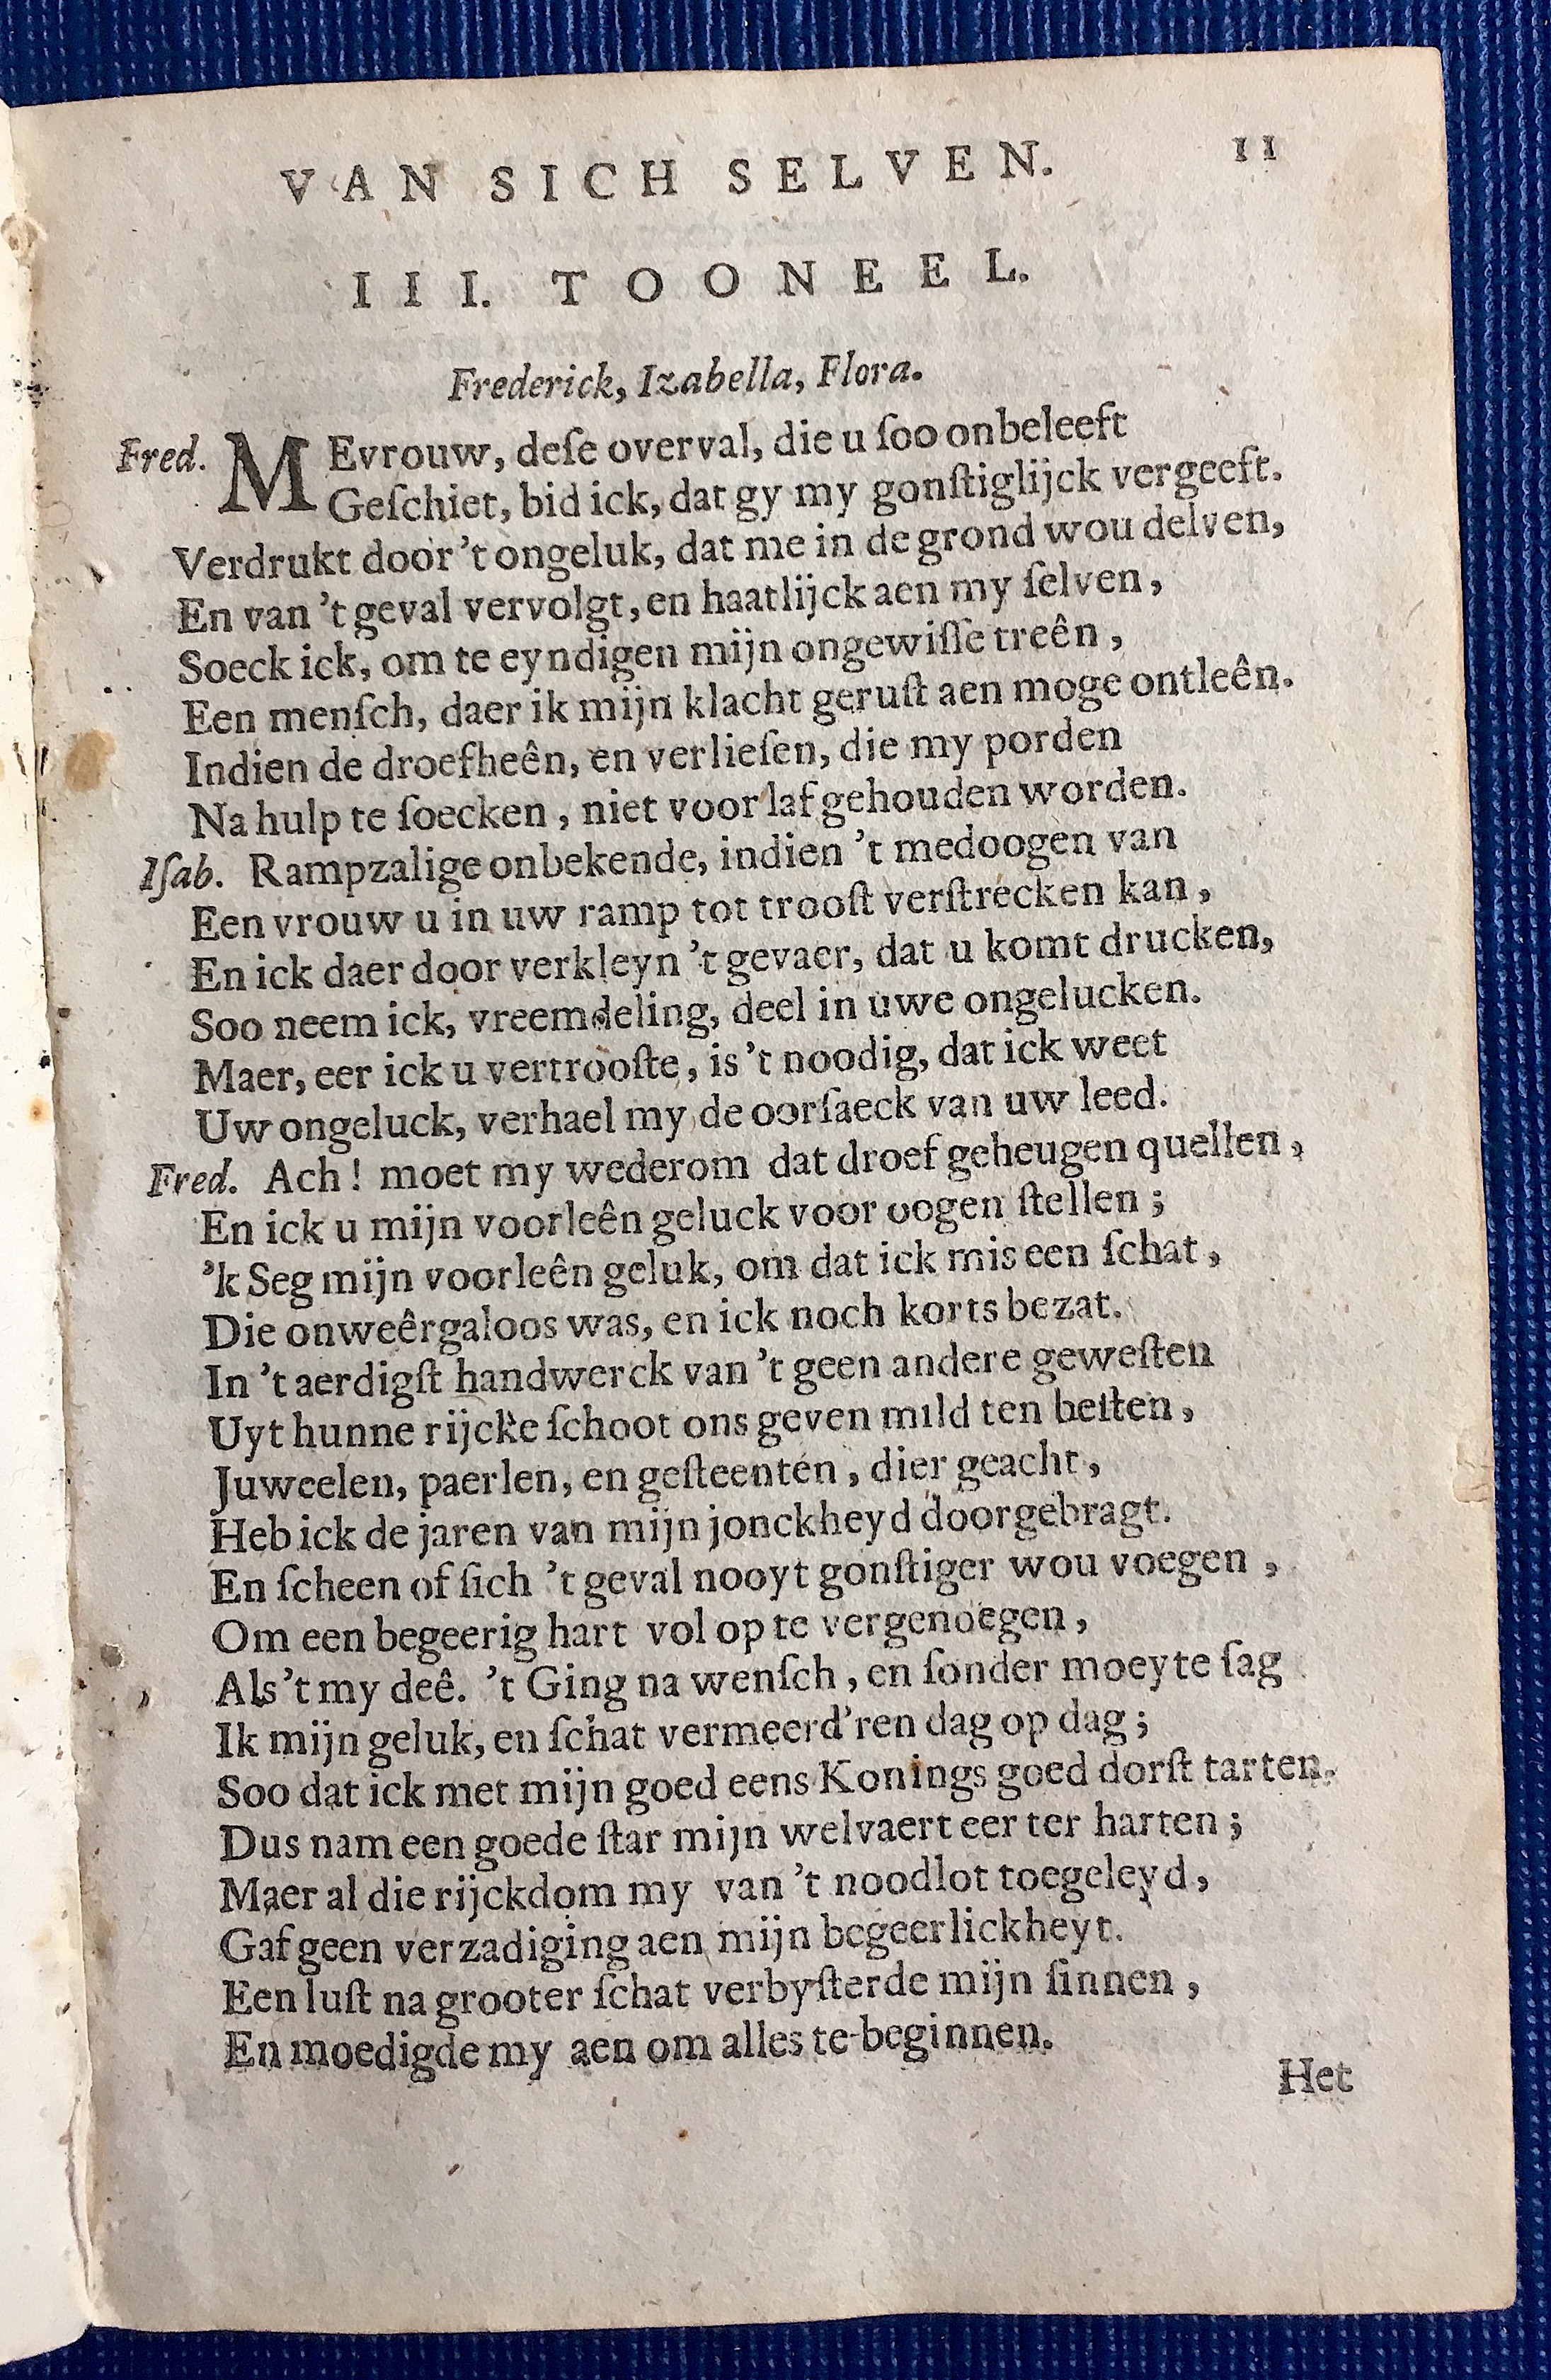 VAN SICH SELVEN. 11
III. TOONEEL.
Frederick, Izabella, Flora.
Fred. MEvrouw, deſe overval, die u ſoo onbeleeft
Geſchiet, bid ick, dat gy my gonſtiglijck vergeeft.
Verdrukt door 't ongeluk, dat me in de grond wou delven,
En van 't geval vervolgt, en haatlijck aen my ſelven,
Soeck ick, om te eyndigen mijn ongewiſſe treên,
Een menſch, daer ik mijn klacht geruſt aen moge ontleên.
Indien de droefheên, en verlieſen, die my porden
Na hulp te ſoecken, niet voor laf gehouden worden.
Iſab. Rampzalige onbekende, indien 't medoogen van
Een vrouw u in uw ramp tot trooſt verſtrecken kan,
En ick daer door verkleyn 't gevaer, dat u komt drucken,
Soo neem ick, vreemdeling, deel in uwe ongelucken.
Maer, eer ick u vertrooſte, is 't noodig, dat ick weet
Uw ongeluck, verhael my de oorſaeck van uw leed.
Fred. Ach! moet my wederom dat droef geheugen quellen,
En ick u mijn voorleên geluck voor oogen ſtellen;
'k Seg mijn voorleên geluk, om dat ick mis een ſchat,
Die onweêrgaloos was, en ick noch korts bezat.
In 't aerdigſt handwerck van 't geen andere geweſten
Uyt hunne rijcke ſchoot ons geven mild ten beſten,
Juweelen, paerlen, en geſteenten, dier geacht,
Heb ick de jaren van mijn jonckheyd doorgebragt.
En ſcheen of ſich 't geval nooyt gonſtiger wou voegen,
Om een begeerig hart vol op te vergenoegen,
Als 't my deê. 't Ging na wenſch, en ſonder moeyte ſag
Ik mijn geluk, en ſchat vermeerd'ren dag op dag;
Soo dat ick met mijn goed eens Konings goed dorſt tarten.
Dus nam een goede ſtar mijn welvaert eer ter harten;
Maer al die rijckdom my van 't noodlot toegeleyd,
Gaf geen verzadiging aen mijn begeerlickheyt.
Een luſt na grooter ſchat verbyſterde mijn ſinnen,
En moedigde my aen om alles te beginnen.
Het